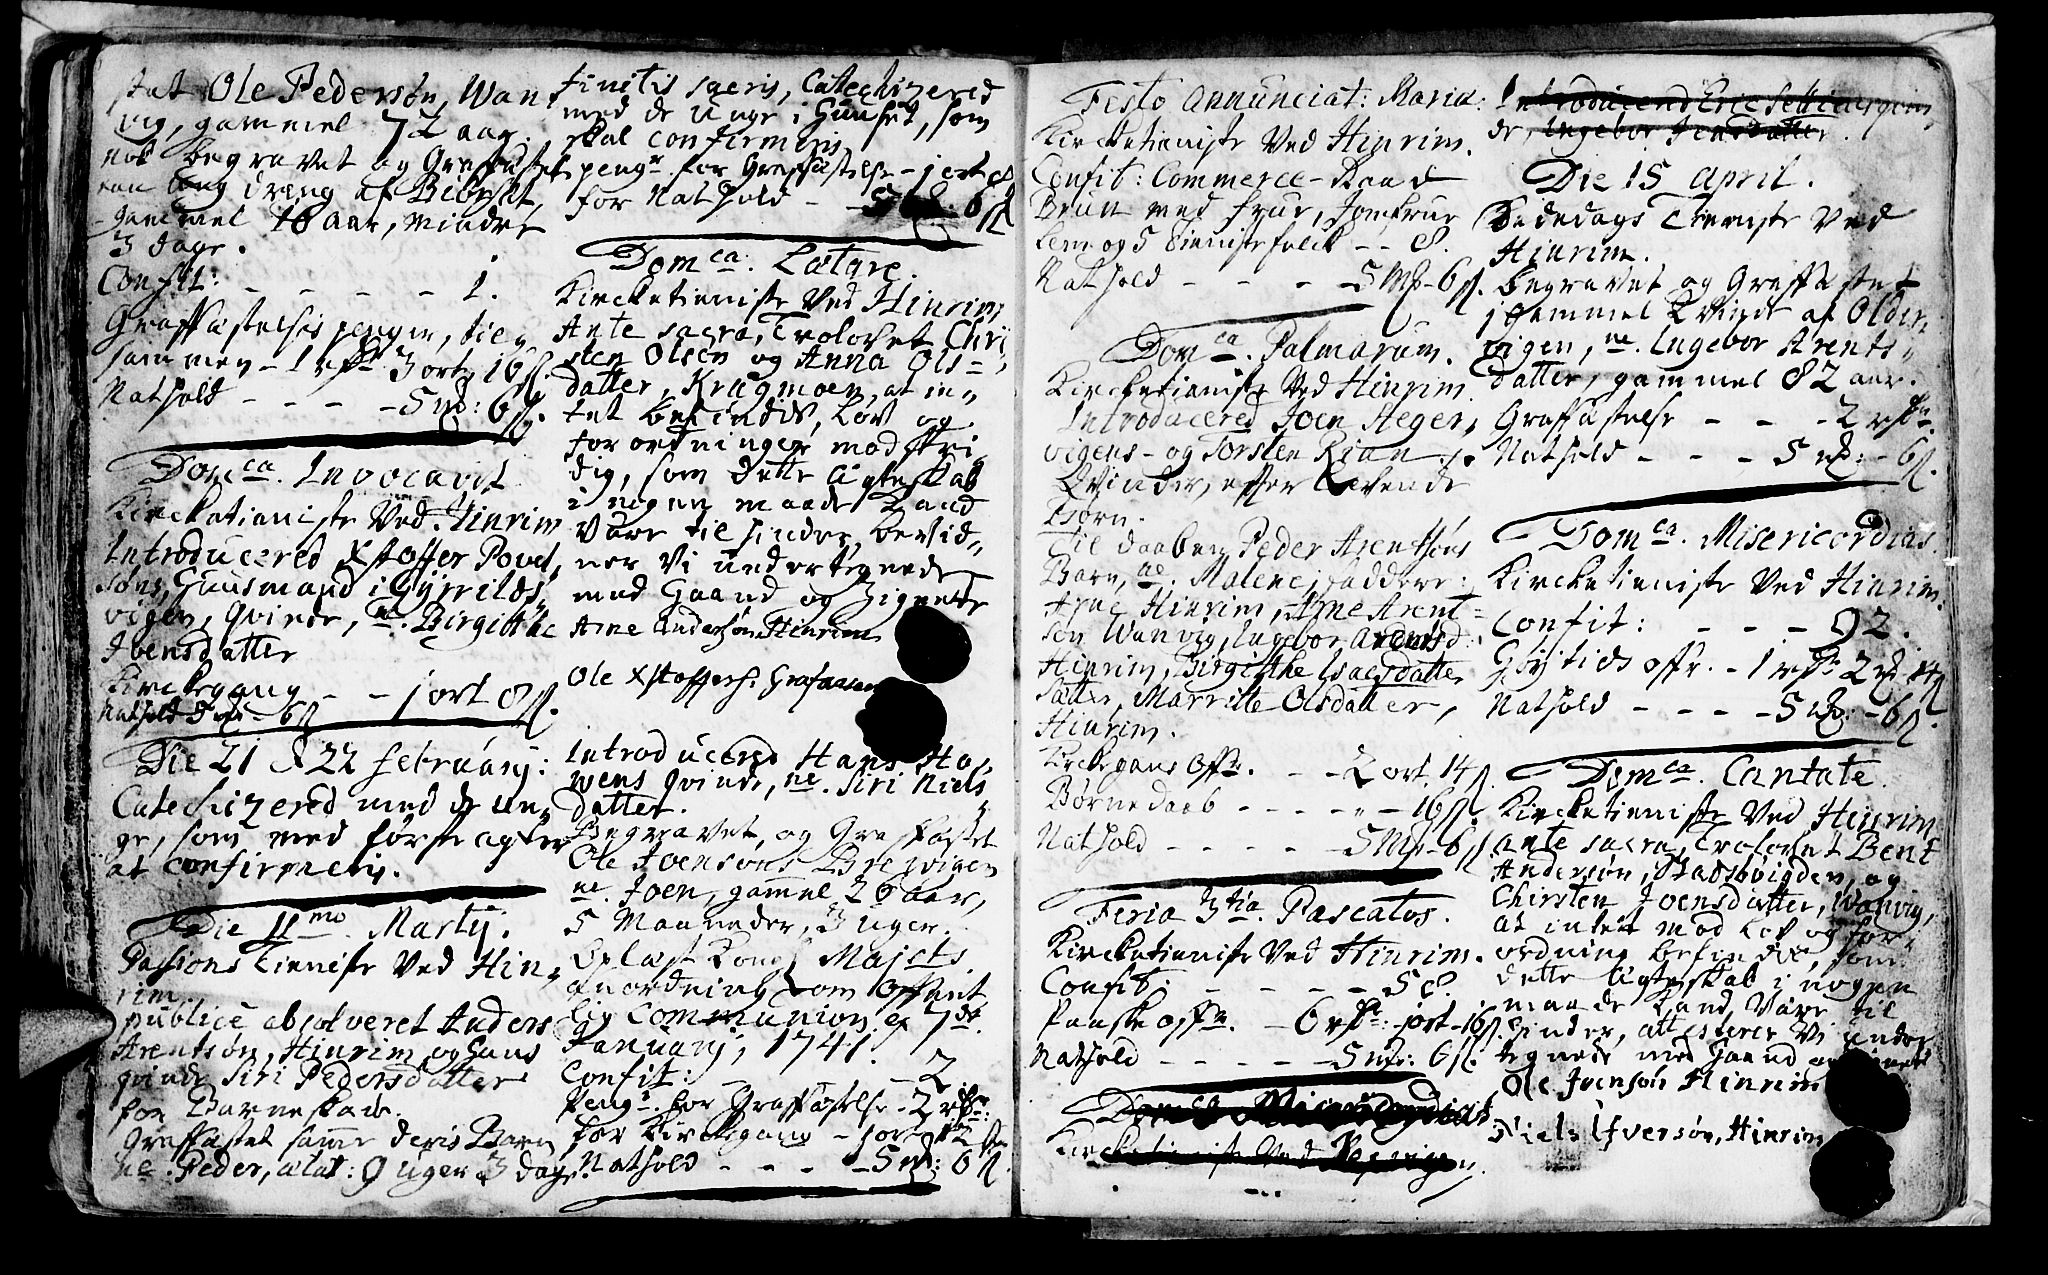 stet Ole Pedersøn, Wan
vig, gammel 72 aar.
nok begravet og Graffæstet
een ung dreng af Bebøset,
gammel 18 aar, mindre
3 dage.
Confit: - - - - - 1.
Graffæstelsis penger, til
sammen - 1 rdr 3 ort 16 s.
Nathold - - - - 5 mk: 6 s.
Domca. Invocavit
Kircketieniste Ved Hinrim
Introducered Xstoffer Povel
søns, Huusmand i Gyrrilds
vigen, Qvinde, ne. Birgitthe
Joensdatter
Kirckegang - - 1 ort 8 s.
Nathold 5 mk - 6 s
Die 21 & 22 february:
Catechizered med de un
ge, som med første agter
at confirmeris.
Die 11mo Martij.
Passions tieniste Ved Hin
rim.
publicè absolveret Anders
Arentsøn, Hinrim og hans
qvinde Siri Pedersdatter
for Barneskam.
Graffæstet samme deris Barn
ne. Peder, ætat: 9 uger 3 dage.
finitis sacris, Catechizered
med de Unge i Huuset, som
skal confirmeris
penge for Graffæstelse - 1 ort
for Nathold - - 5 mk. 6 s
Domca. Lætare.
Kircketieniste Ved Hinrim
Ante sacra, Trolovet Chri
sten Olsen og Anna Ols=
datter, Krogmoen, at in
tet befindis, Lov og
forordninger modstri
dig, som dette ægteskab
i nogen maade kand
være til hinder, bevid
ner Vi undertegnede
med Haand og Zignete
Arne Andersøn Hinrim
Ole Xstoffers. Grafaasen
Introducered Hans Ha
wens qvinde, ne. Siri Niels
datter.
Begravet, og Graffæstet
Ole Joensøns Brevigen
ne. Joen, gamel 26 aar,
5 Maaneder, 3 uger.
Oplæst Kongl Majcts
anordning om Offent
lig Communion af 7de
January, 1741.
Confit: - - - - 2
Peng. for Graffæstelse - 2 rdr:
for Kirckegang - 1 ort
Nathold - - - - 5 mk: 6 s.
Festo Annunciat: Mariæ:
Kircketieniste Ved Hinrim.
Confit: Commerce-Raad
Brun med frue, Jomfrue
lem og 5 tienistefolck - - 8.
Nathold - - - - 5 Mk - 6 s.
Domca. Palmarum.
Kircketieniste Ved Hinrim
Introducered Joen Heger,
vigens - og Torsten Rian
Qvinder, efter levende
Børn.
Til daaben Peder Arentsøns
Barn, ne. Malene, faddere:
Arne Hinrim, Arne Arent=
søn Wanvig, Ingebor Arentsd:
Hinrim, Birgitthe Isacsdatter
Sætter, Marritte Olsdatter,
Hinrim.
Kirkegangs Offr. - - 2 ort. 14 s.
Børnedaab - - - - - 16 s.
Nathold - - - - - 5 Mk - 6 s.
Feria 3tia. Pascatos.
Kircketieniste Ved Hinrim.
Confit: - - - - - 58.
Paaske offr. - 6 rdr: 1 ort - 16 s.
Nathold - - - - - 5 mk: 6 s.
Domca Misericordias
Kircketieniste Ved
Introducered Eric
de, Ingebor Jensdatter.
Die 15 April.
Bededags Tieniste Ved
Hinrim.
begravet og Graffæstet
1 gammel Qvinde af Olden
vigen, ne. Ingebor Arents
datter, gammel 82 aar.
Graffæstelse - - - 2 rdr.
Nathold - - - - 5 mk: - 6 s.
Domca. Misericordias.
Kircketieniste Ved Hinrim.
Confit: - - - - 92.
Høytids offr. - 1 rdr 2 mk 14 s
Nathold - - - - 5 mk: - 6 s.
Domca. Cantate
Kircketieniste Ved Hinrim
ante sacra, Trolovet Bent
Andersøn, Stadsbøigden, og
Chirsten Joensdatter, Wanvig,
at intet mod Lov og for
ordning befindis, som
dette ægteskab i nogen
maade kand være til
hinder, attesterer Vi under
tegnede med Haand og
Ole Joensøn Hinrim
Niels Ifversøn, Hinrim